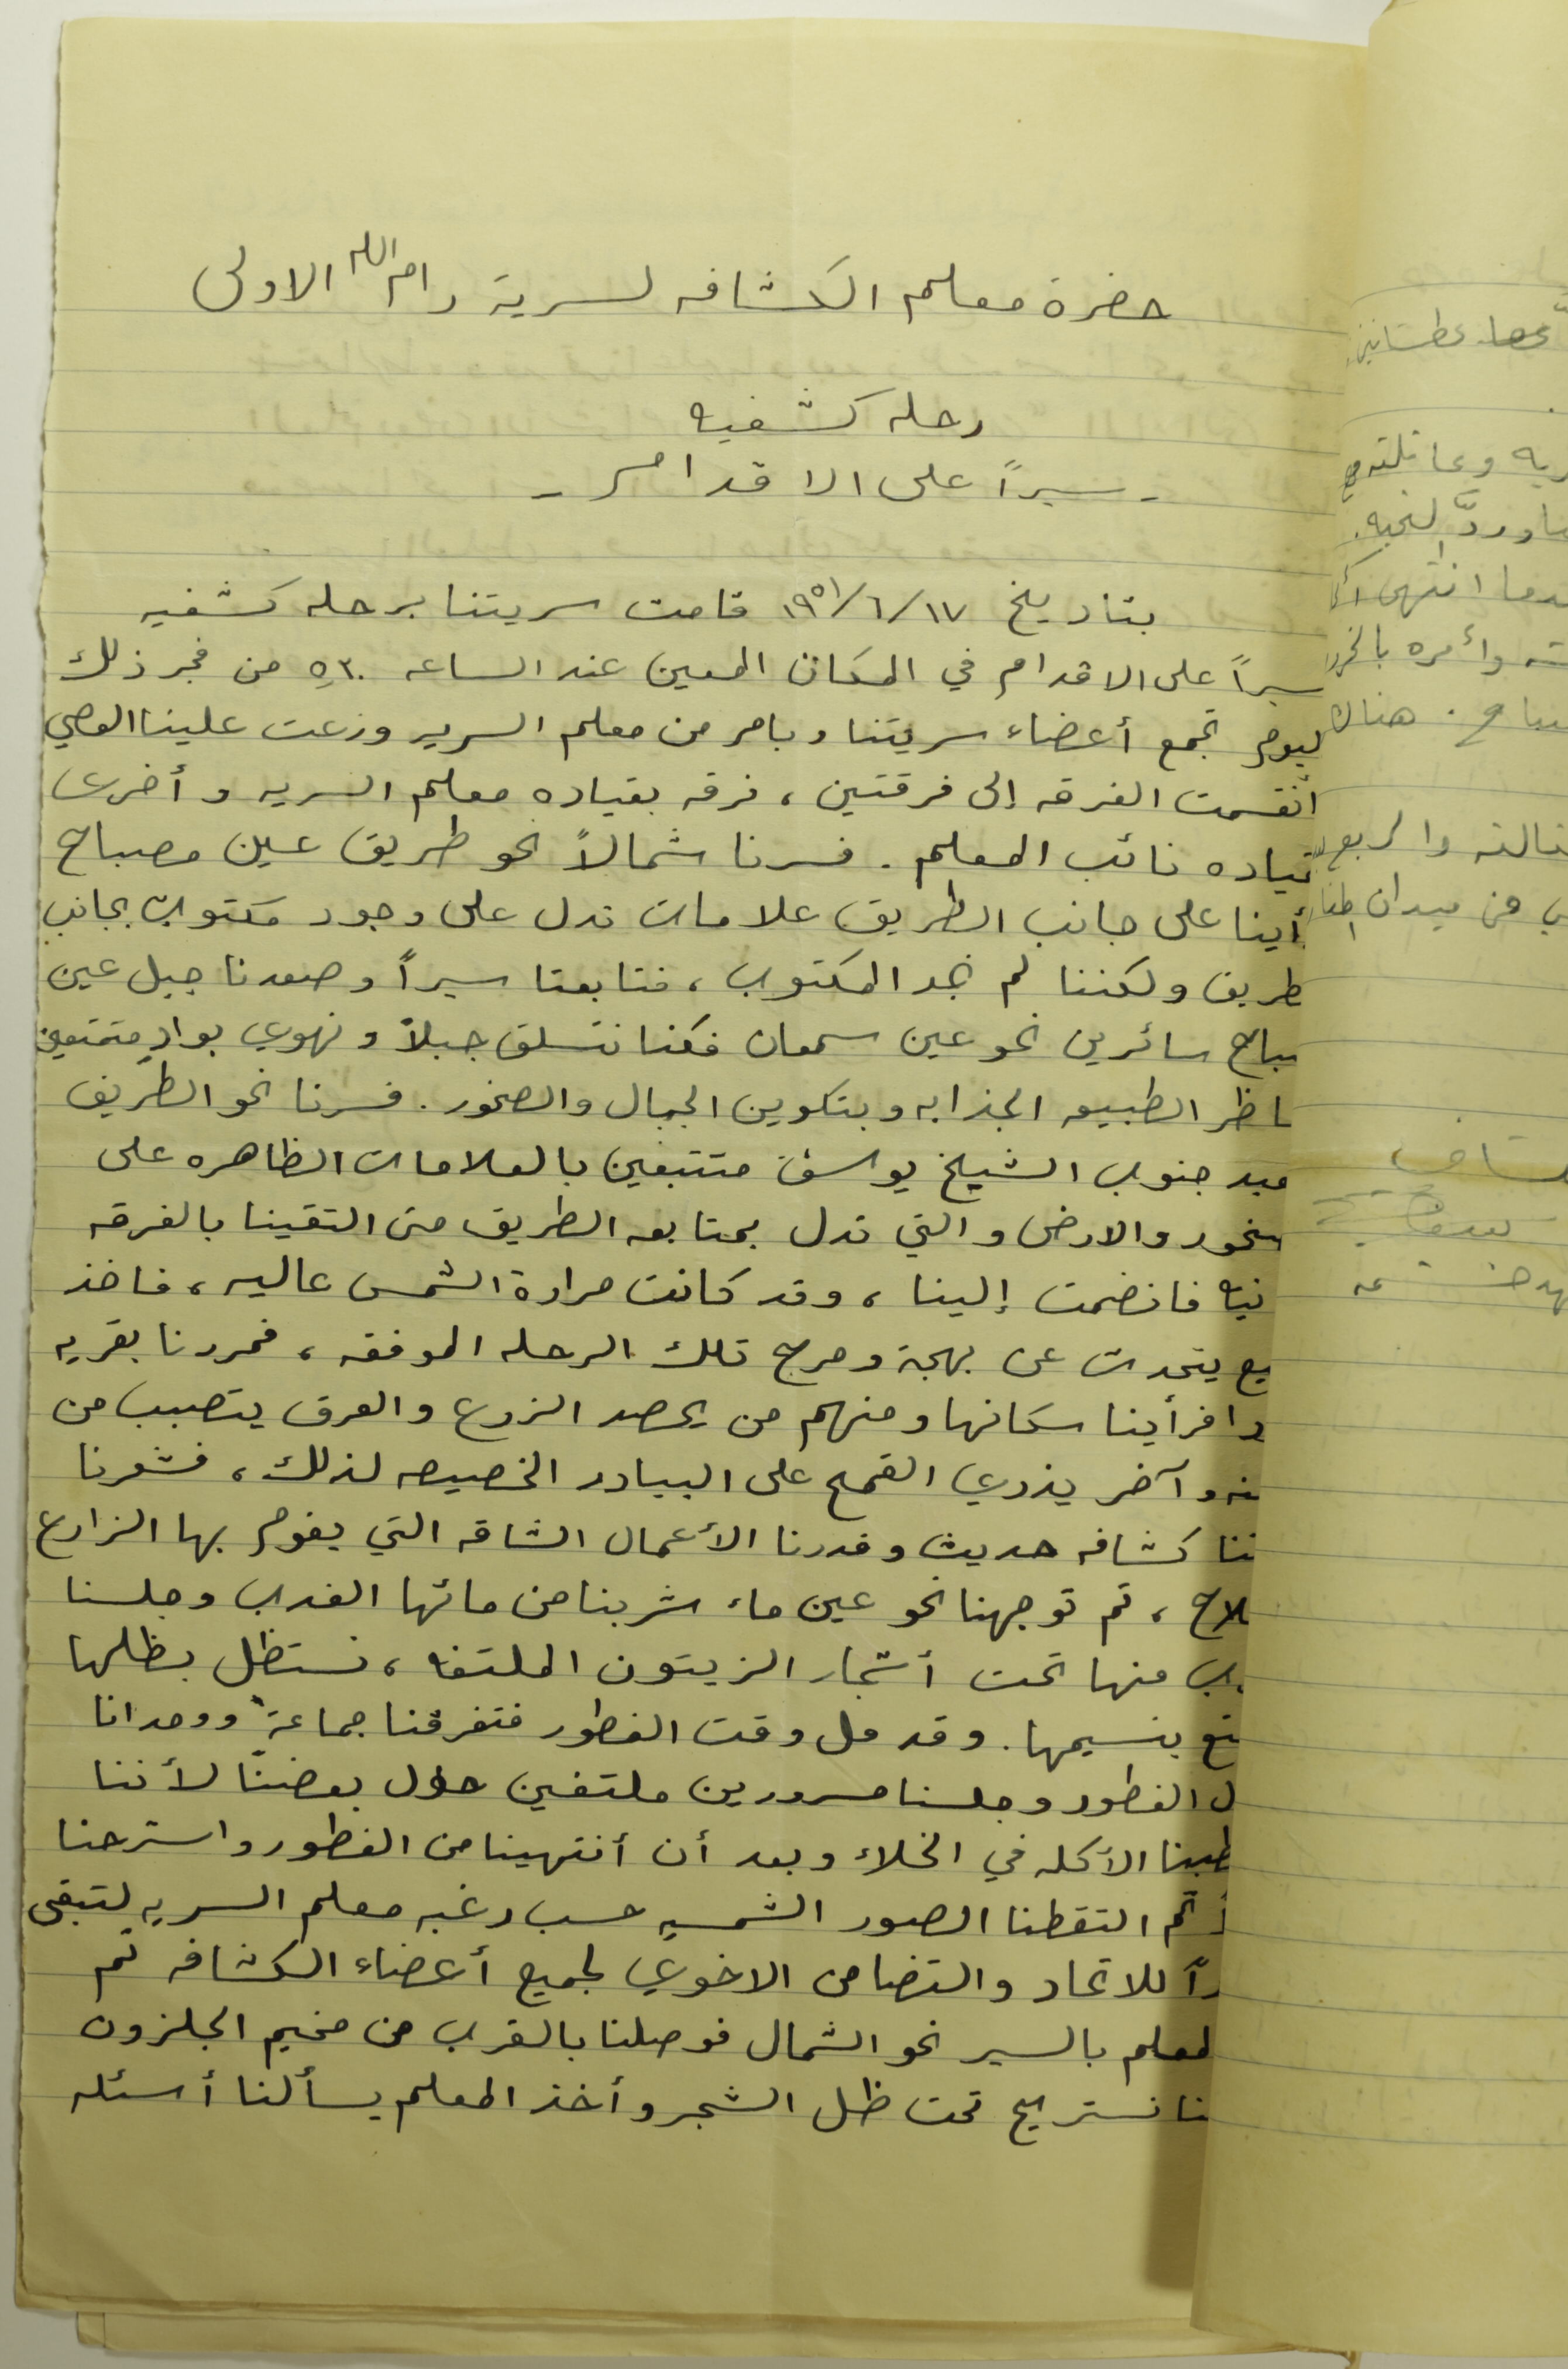 حضرة معلم الكشافه لسرية رام الله الاولى
رحله كشفيه
- سيراً على الاقدام -
بتاريخ ١٩٥١/٦/١٧ قامت سريتنا برحله كشفيه
سيراً على الاقدام في المكان المعين عند الساعه ٥٫٣٠ من فجر ذلك
ليوم تجمع أعضاء سريتنا وبامر من معلم السريه وزعت علينا العصي
انقسمت الفرقه إلى فرقتين ، فرقه بقياده معلم السريه وأخرى
قياده نائب المعلم . فسرنا شمالاً نحو طريق عين مصباح
أينا على جانب الطريق علامات تدل على وجود مكتوب بجانب
طريق ولكننا لم نجد المكتوب ، فتابعنا سيراً وصعدنا جبل عين
باح سائرين نحو عين سمعان فكنا نتسلق جبلاً ونهوي بوادٍ متمتعين
اظر الطبيعه الجذابه وبتكوين الجبال والصخور . فسرنا نحو الطريق
عبد جنوب الشيخ يوسف متتبعين بالعلامات الظاهره على
صخور والارض والتي تدل بمتابعه الطريق حتى التقينا بالفرقه
نيه فانضمت إلينا ، وقد كانت حرارة الشمس عاليه ، فاخذ
يع يتحدث عن بهجة ومرح تلك الرحله الموفقه ، فمررنا بقريه
دا فرأينا سكانها ومنهم من يحصد الزرع والعرق يتصبب من
نه وآخر يذري القمح على البيادر الخصيصه لذلك ، فشعرنا
ننا كشافه حديث وقدرنا الأعمال الشاقه التي يقوم بها الزارع
لاح ، ثم توجهنا نحو عين ماء شربنا من مائها العذب وجلسنا
ب منها تحت أشجار الزيتون الملتفه ، نستظل بظلها
تع بنسيمها . وقد حل وقت الفطور فتفرقنا جماعةً ووحدانا
ل الفطور وجلسنا مسرورين ملتفين حول بعضنا لأننا
طبنا الأكله في الخلاء وبعد أن أنتهينا من الفطور واسترحنا
ثم التقطنا الصور الشمسيه حسب رغبه معلم السريه لتبقى
راً للاتحاد والتضامن الاخوي لجميع أعضاء الكشافه ثم
لمعلم بالسير نحو الشمال فوصلنا بالقرب من مخيم الجلزون
نا نستريح تحت ظل الشجر وأخذ المعلم يسألنا أسئله
ريه وعائلته
دما انتهى
ته وأمره
صباح . هناك
ثالثه والربع
من ميدان